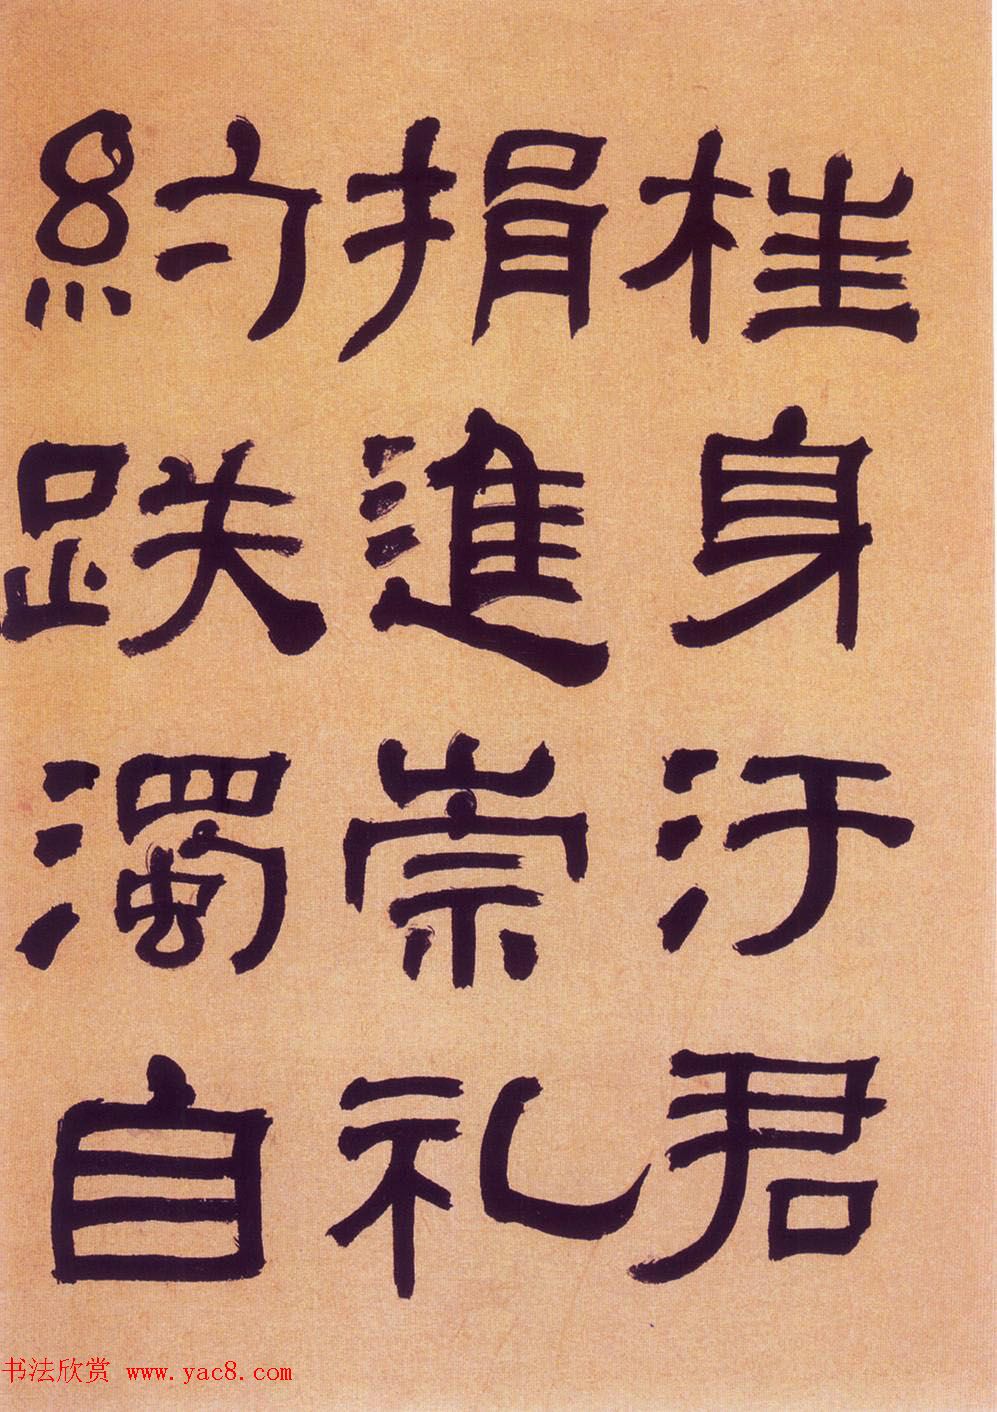 桂身汙君
捐進崇礼
約跌濁自
书法欣赏 www.yac8.com